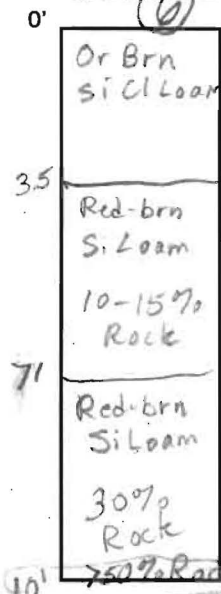 6
0'
Or Brn
Si Cl Loam
3.5
Red-brn
Si Loam
10-15%
Rock
7'
Red-brn
Si Loam
30%
Rock
10' >50% Roc